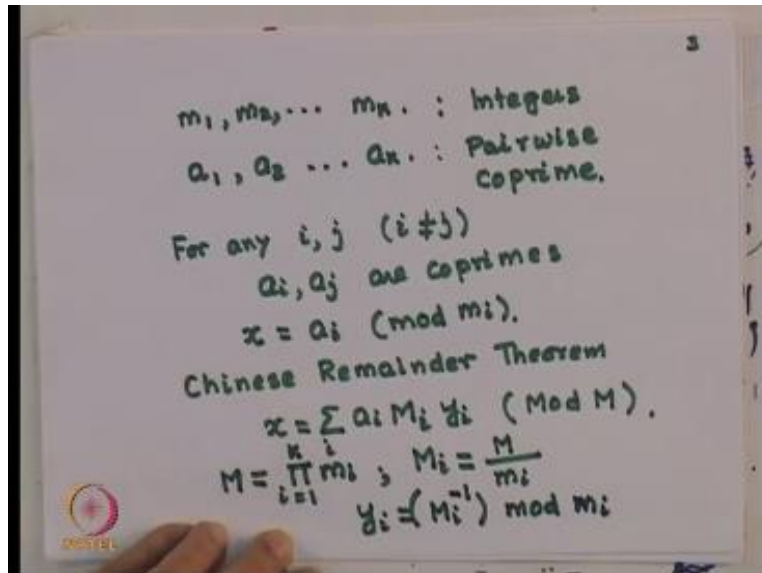 3
m₁, m₂, ... mₖ. : Integers
a₁, a₂ ... aₖ. : Pairwise
coprime.
For any i, j (i ≠ j)
aᵢ, aⱼ are coprimes
x = aᵢ (mod mᵢ).
Chinese Remainder Theorem
x = Σᵢ aᵢ Mᵢ yᵢ (Mod M).
M = ∏ᵢ₌₁ᵏ mᵢ ; Mᵢ = M/mᵢ
yᵢ = (Mᵢ⁻¹) mod mᵢ
NPTEL